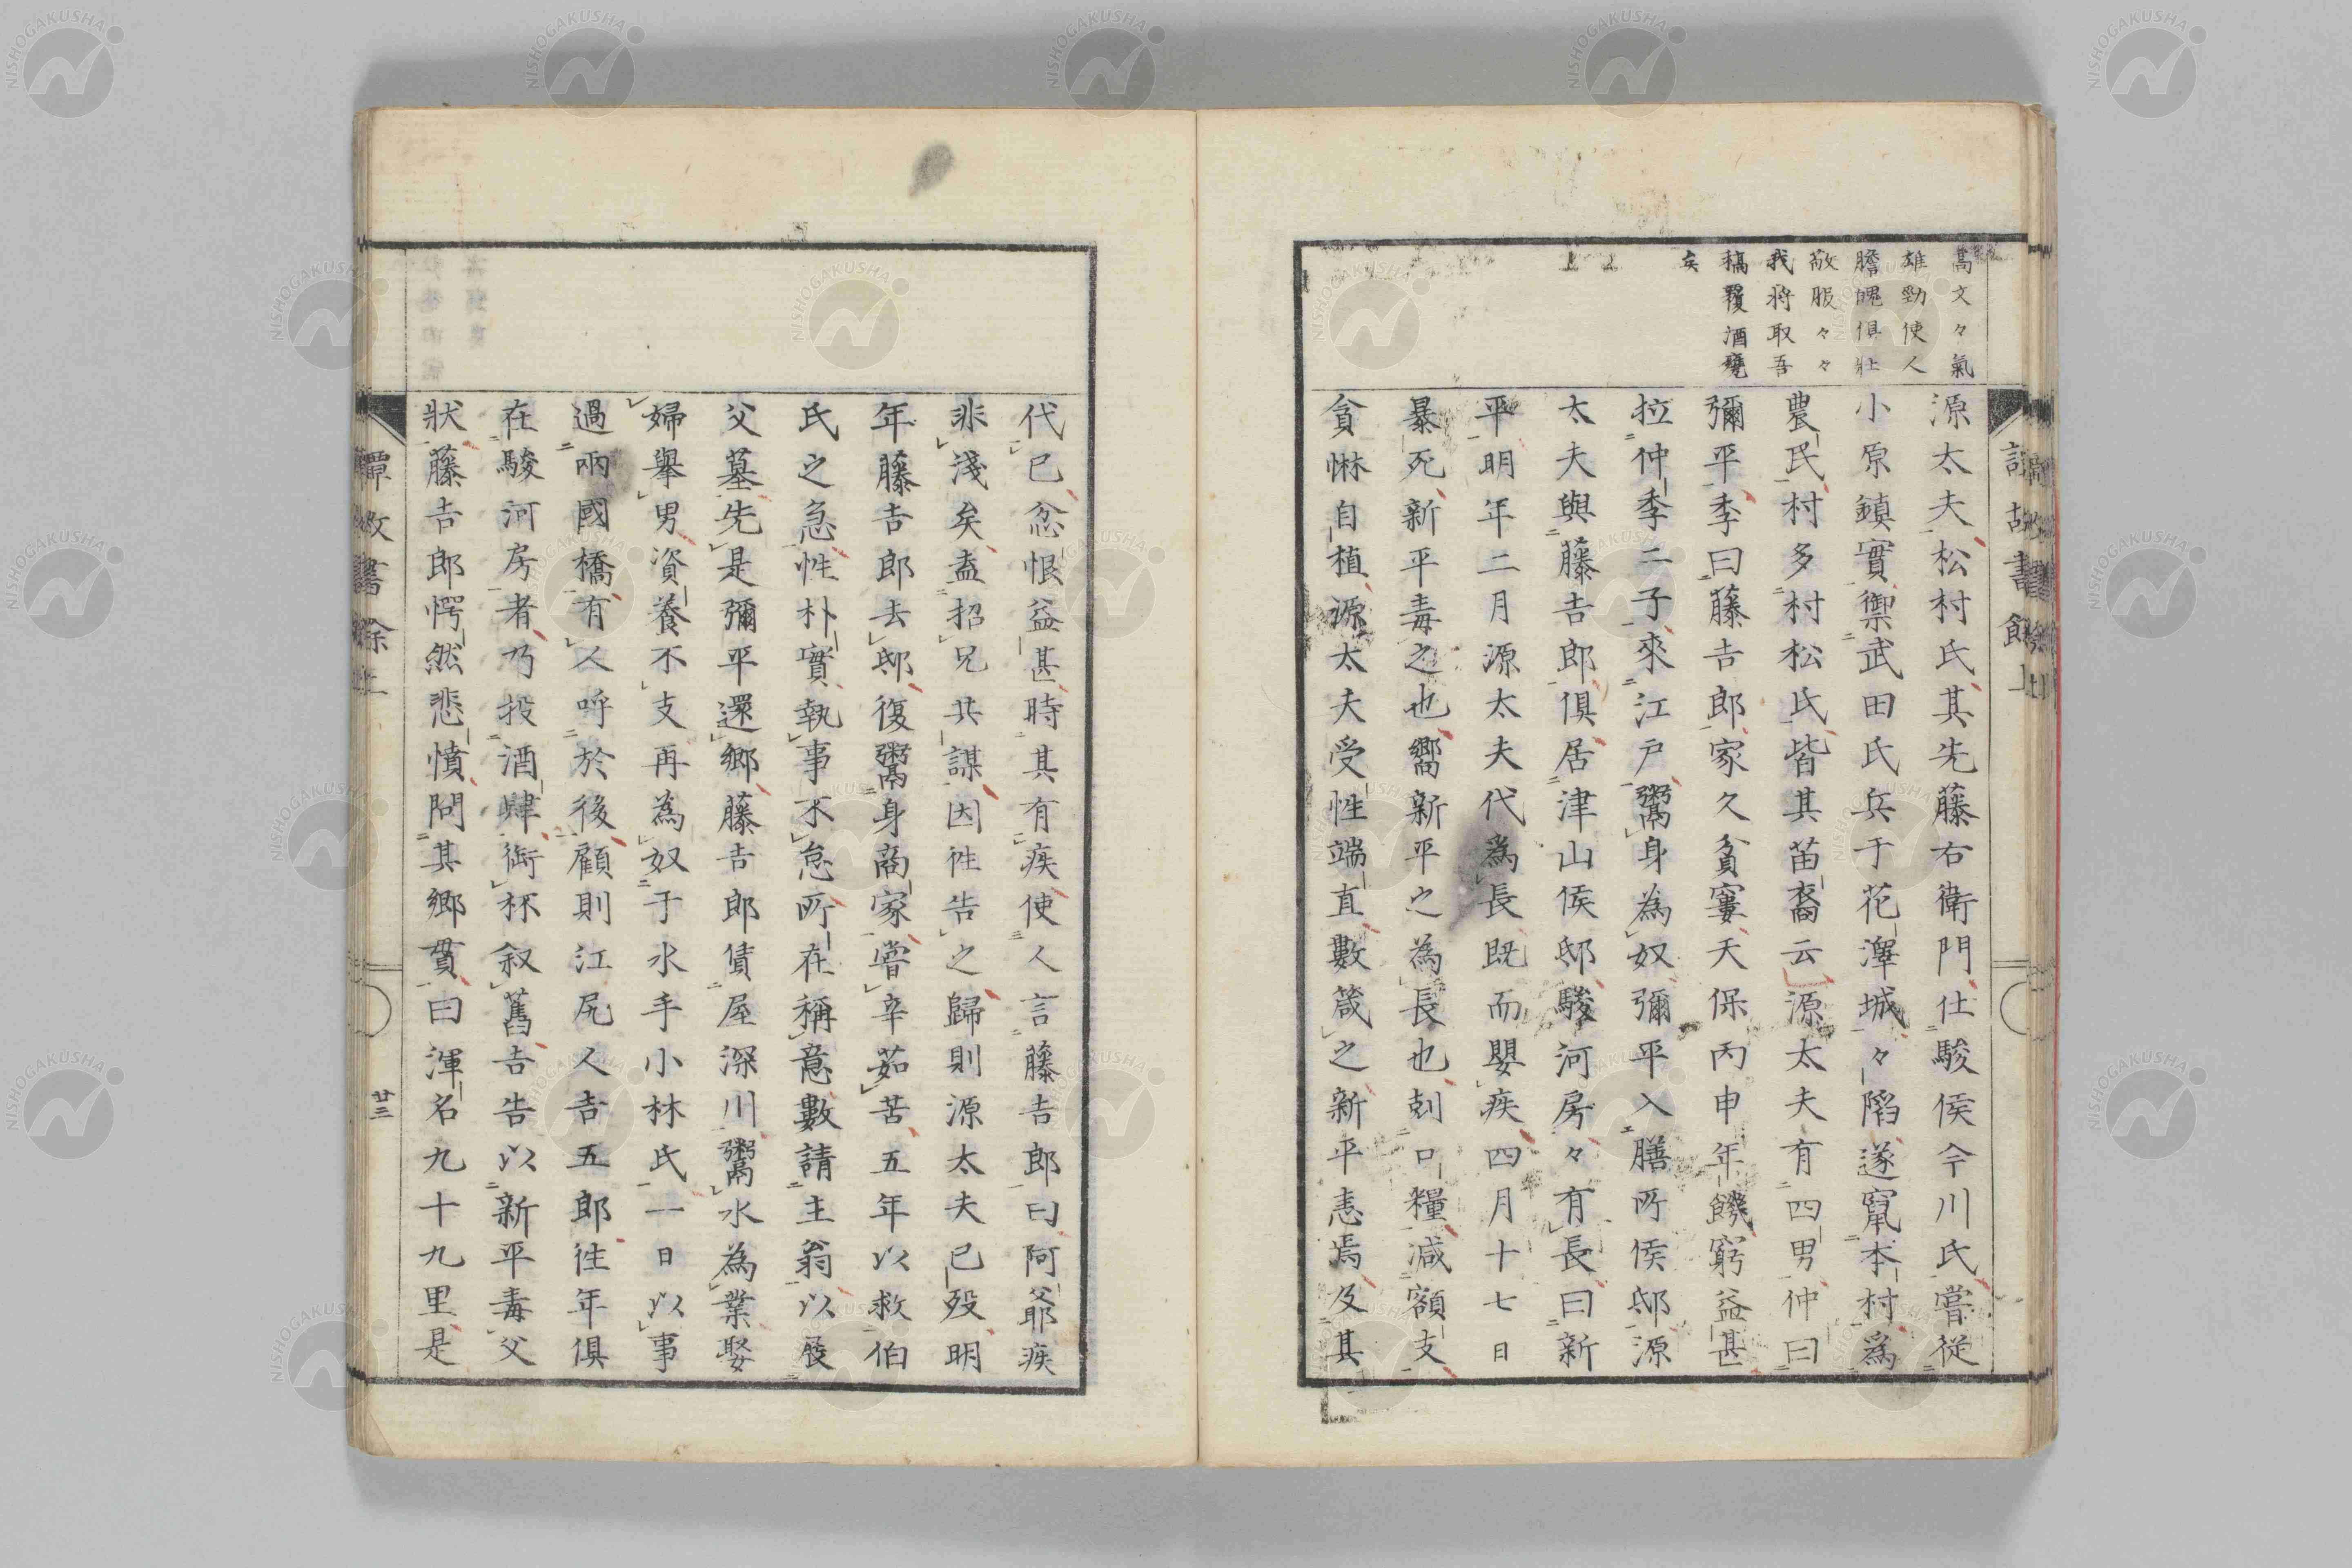 高文々氣
雄勁使人
膽魄俱壯
敬服々々
我將取吾
稿覆酒甕
矣
源太夫松村氏其先藤右衛門仕駿侯今川氏嘗從
小原鎮實禦武田氏兵于花澤城々陷遂竄本村爲
農民村多村松氏皆其苗裔云源太夫有四男仲曰
彌平季曰藤吉郎家久貧窶天保丙申年饑窮益甚
拉仲季二子來江戸鬻身為奴彌平入膳所侯邸源
太夫與藤吉郎俱居津山侯邸駿河房々有長曰新
平明年二月源太夫代爲長既而嬰疾四月十七日
暴死新平毒之也嚮新平之為長也剋口糧減額支
貪惏自植源太夫受性端直數箴之新平恚焉及其
代已忿恨益甚時其有疾使人言藤吉郎曰阿爺疾
非淺矣盍招兄共謀因徃告之歸則源太夫已歿明
年藤吉郎去邸復鬻身商家嘗辛茹苦五年以救伯
氏之急性朴實執事不怠所在稱意數請主翁以展
父墓先是彌平還郷藤吉郎債屋深川鬻水為業娶
婦擧男資養不支再為奴于水手小林氏一日以事
過兩國橋有人呼於後顧則江尻人吉五郎徃年俱
在駿河房者乃投酒肆衘杯叙舊吉告以新平毒父
狀藤吉郎愕然悲憤問其郷貫曰渾名九十九里是
譚故書餘上
廿三